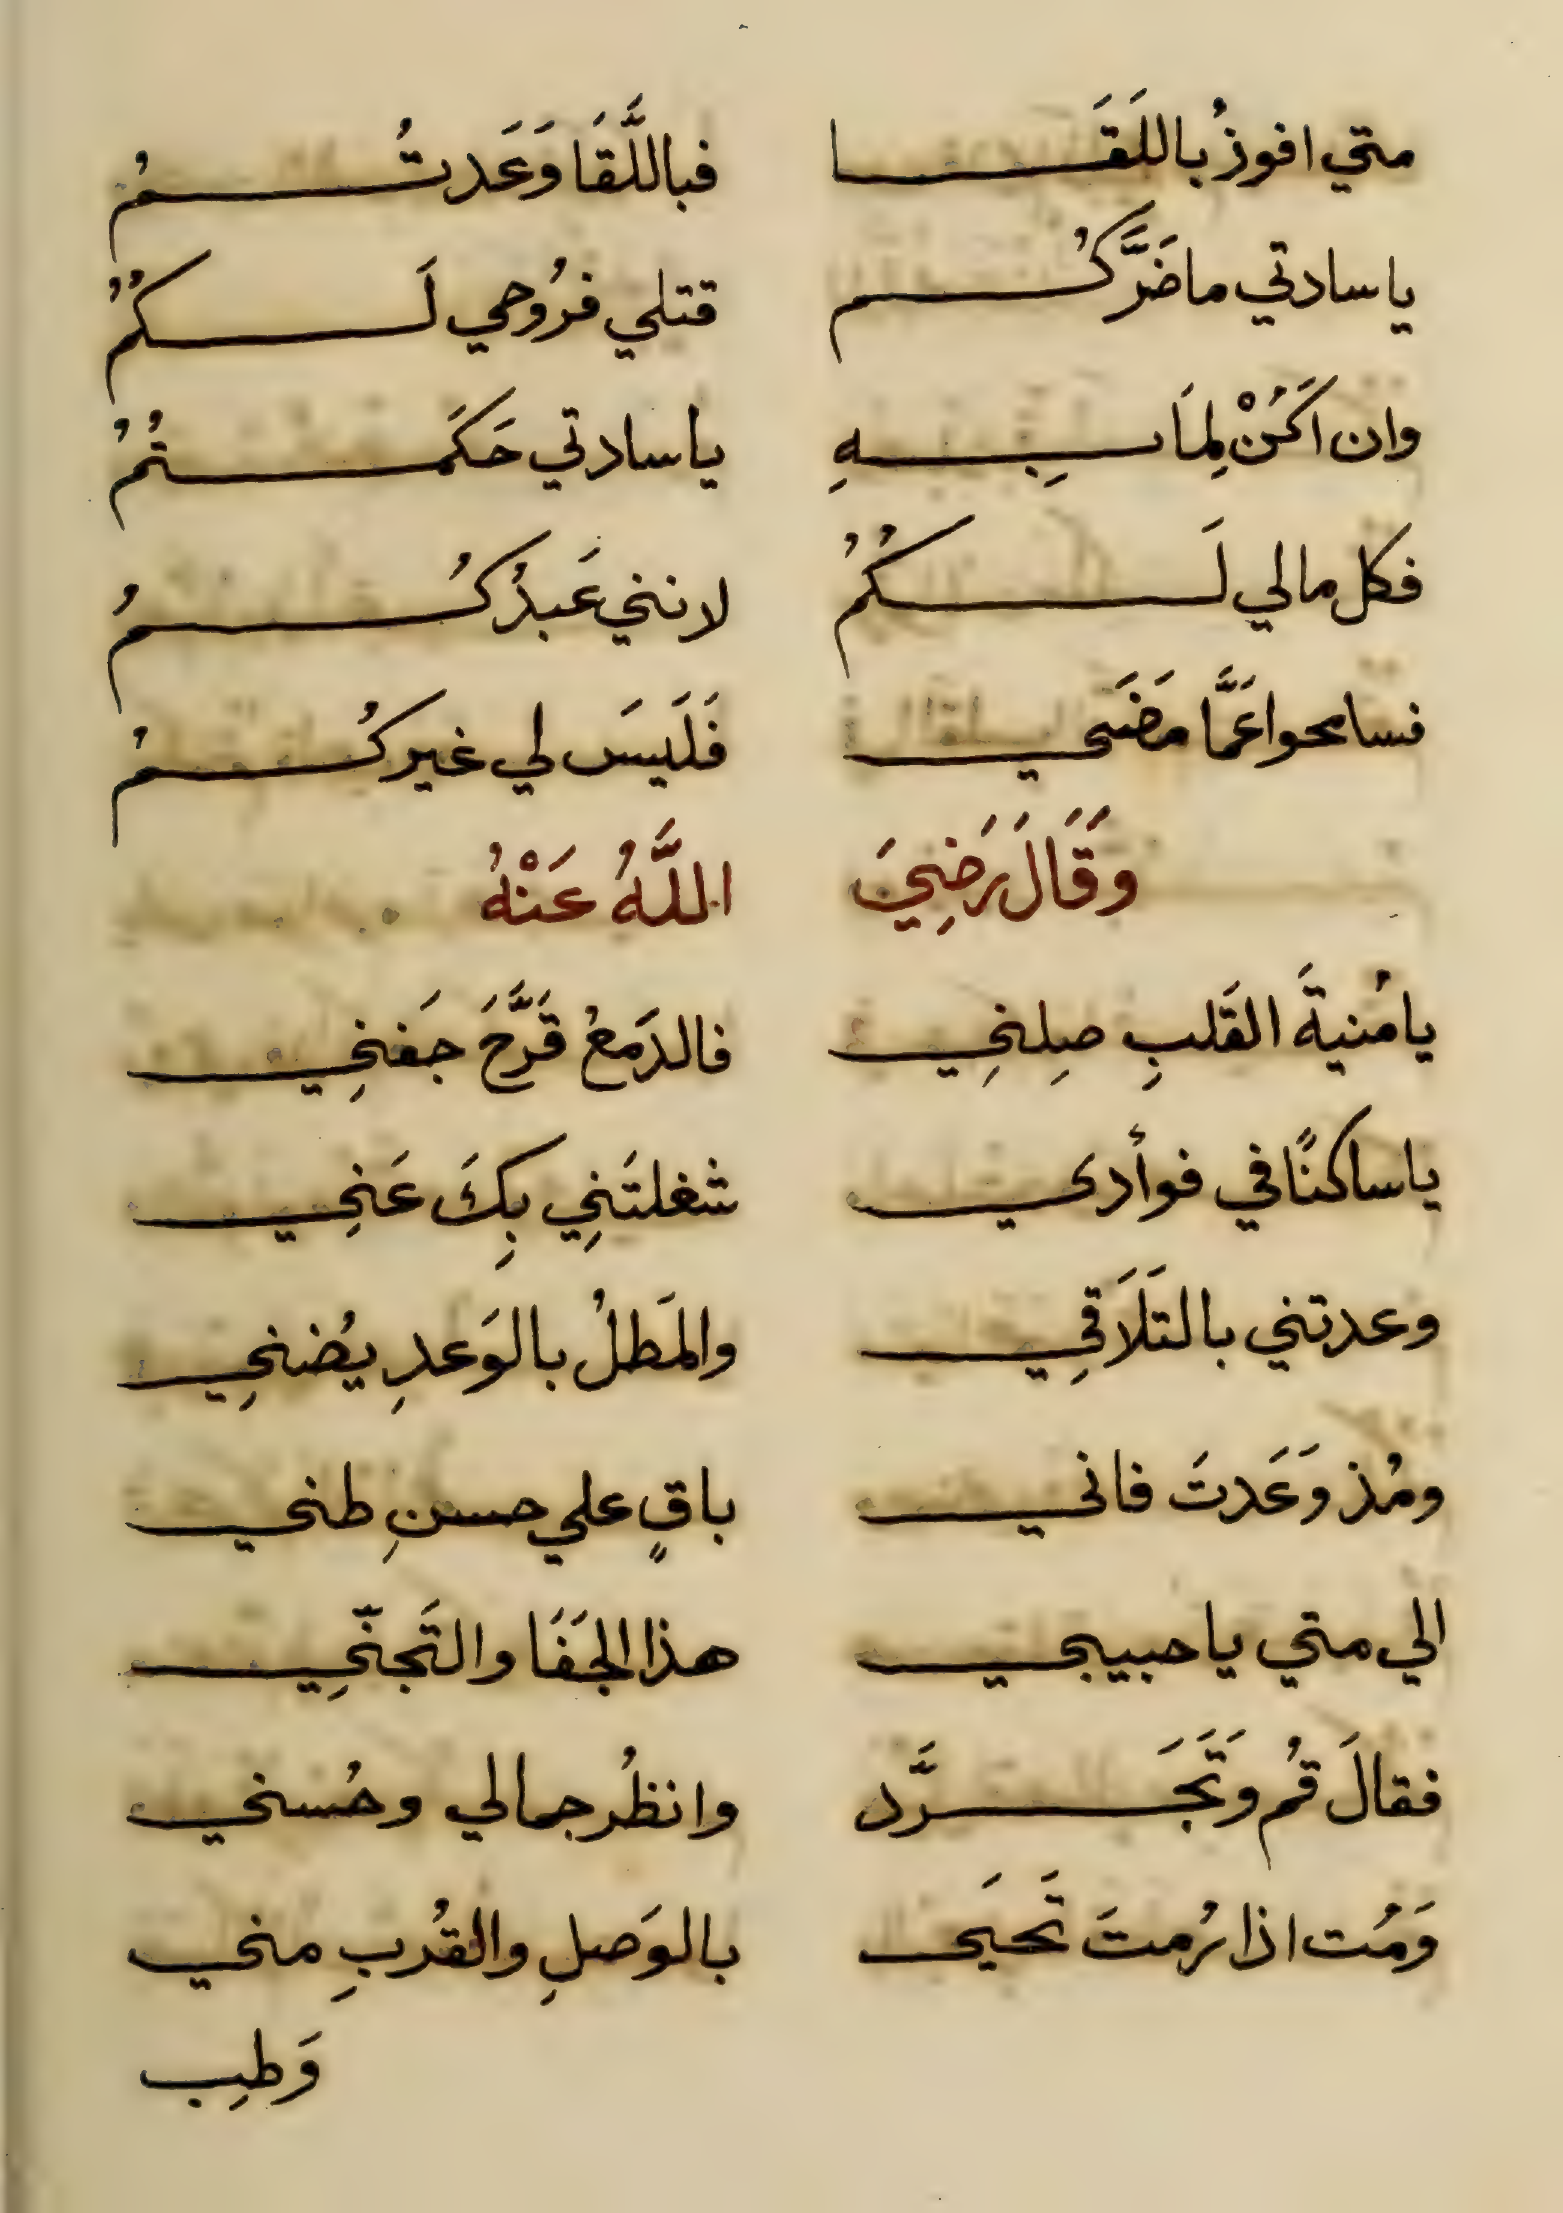 متي افوزُ باللَقَا فباللَّقَا وَعَدتُمُ
يا سادتي ما ضَرَّكُم قتلي فرُوحي لَكُمُ
وان اَكَنْ لِمَا بِهِ يا سادتي حَكَمتُمُ
فكل مالي لَكُمُ لانني عَبدُكُمُ
فسامحوا عَمَّا مَضَي فَلَيسَ لي غيركُمُ
وَقَالَ رَضِيَ اللَّهُ عَنْهُ
يا مُنيةَ القَلبِ صِلنِي فالدَمعُ قَرَّحَ جَفنِي
يا ساكنًا في فوأدي شغلتَنِي بِكَ عَنِي
وعدتني بالتَلَاقِي والمَطلُ بالوَعدِ يُضنِي
ومُذ وَعَدتَ فاني باقٍ علي حسنِ طني
الي متي يا حبيبي هذا الجَفَا والتَجنّي
فقالَ قُم وَتَجَرَّد وانظُر جمالي وحُسني
وَمُت اذا رُمتَ تَحيَي بالوَصلِ والقُربِ مني
وَطِب